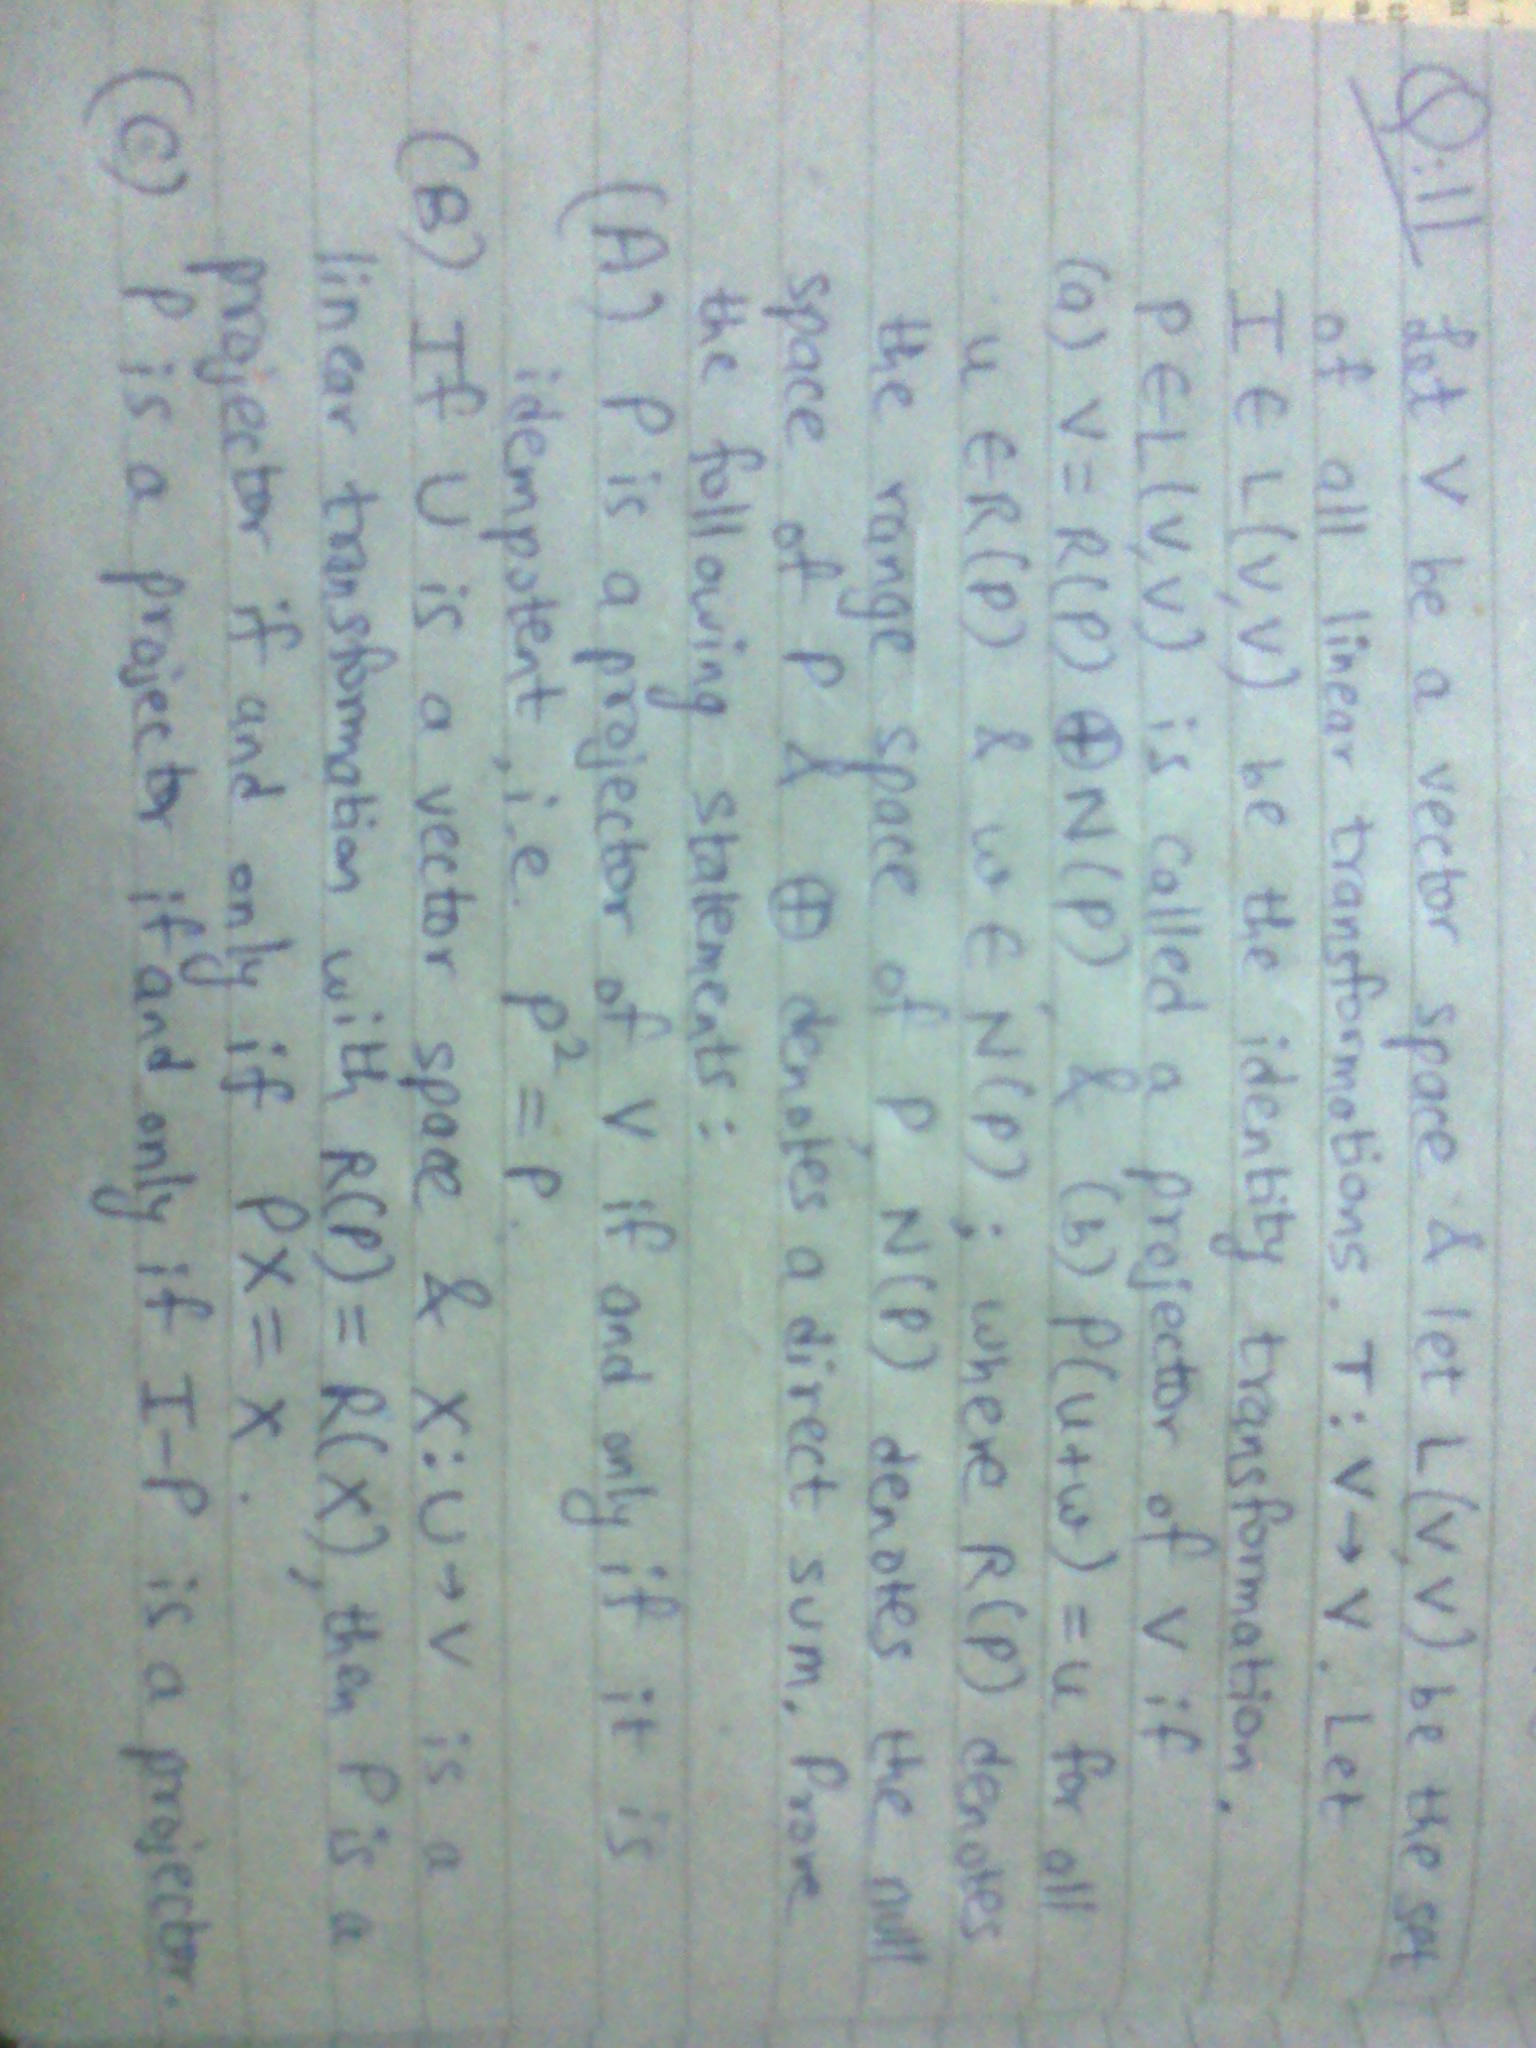 Q:11 Let V be a vector space & let L(V,V) be the set
of all linear transformations. T:V→V. Let
I ∈ L(V,V) be the identity transformation.
P ∈ L(V,V) is called a projector of V if
(a) V = R(P) ⊕ N(P), & (b) P(u+w) = u for all
u ∈ R(P) & w ∈ N(P); where R(P) denotes
the range space of P, N(P) denotes the null
space of P & ⊕ denotes a direct sum. Prove
the following statements:
(A) P is a projector of V if and only if it is
idempotent, i.e. P² = P.
(B) If U is a vector space & X:U→V is a
linear transformation with R(P) = R(X), then P is a
projector if and only if PX = X.
(C) P is a projector if and only if I-P is a projector.